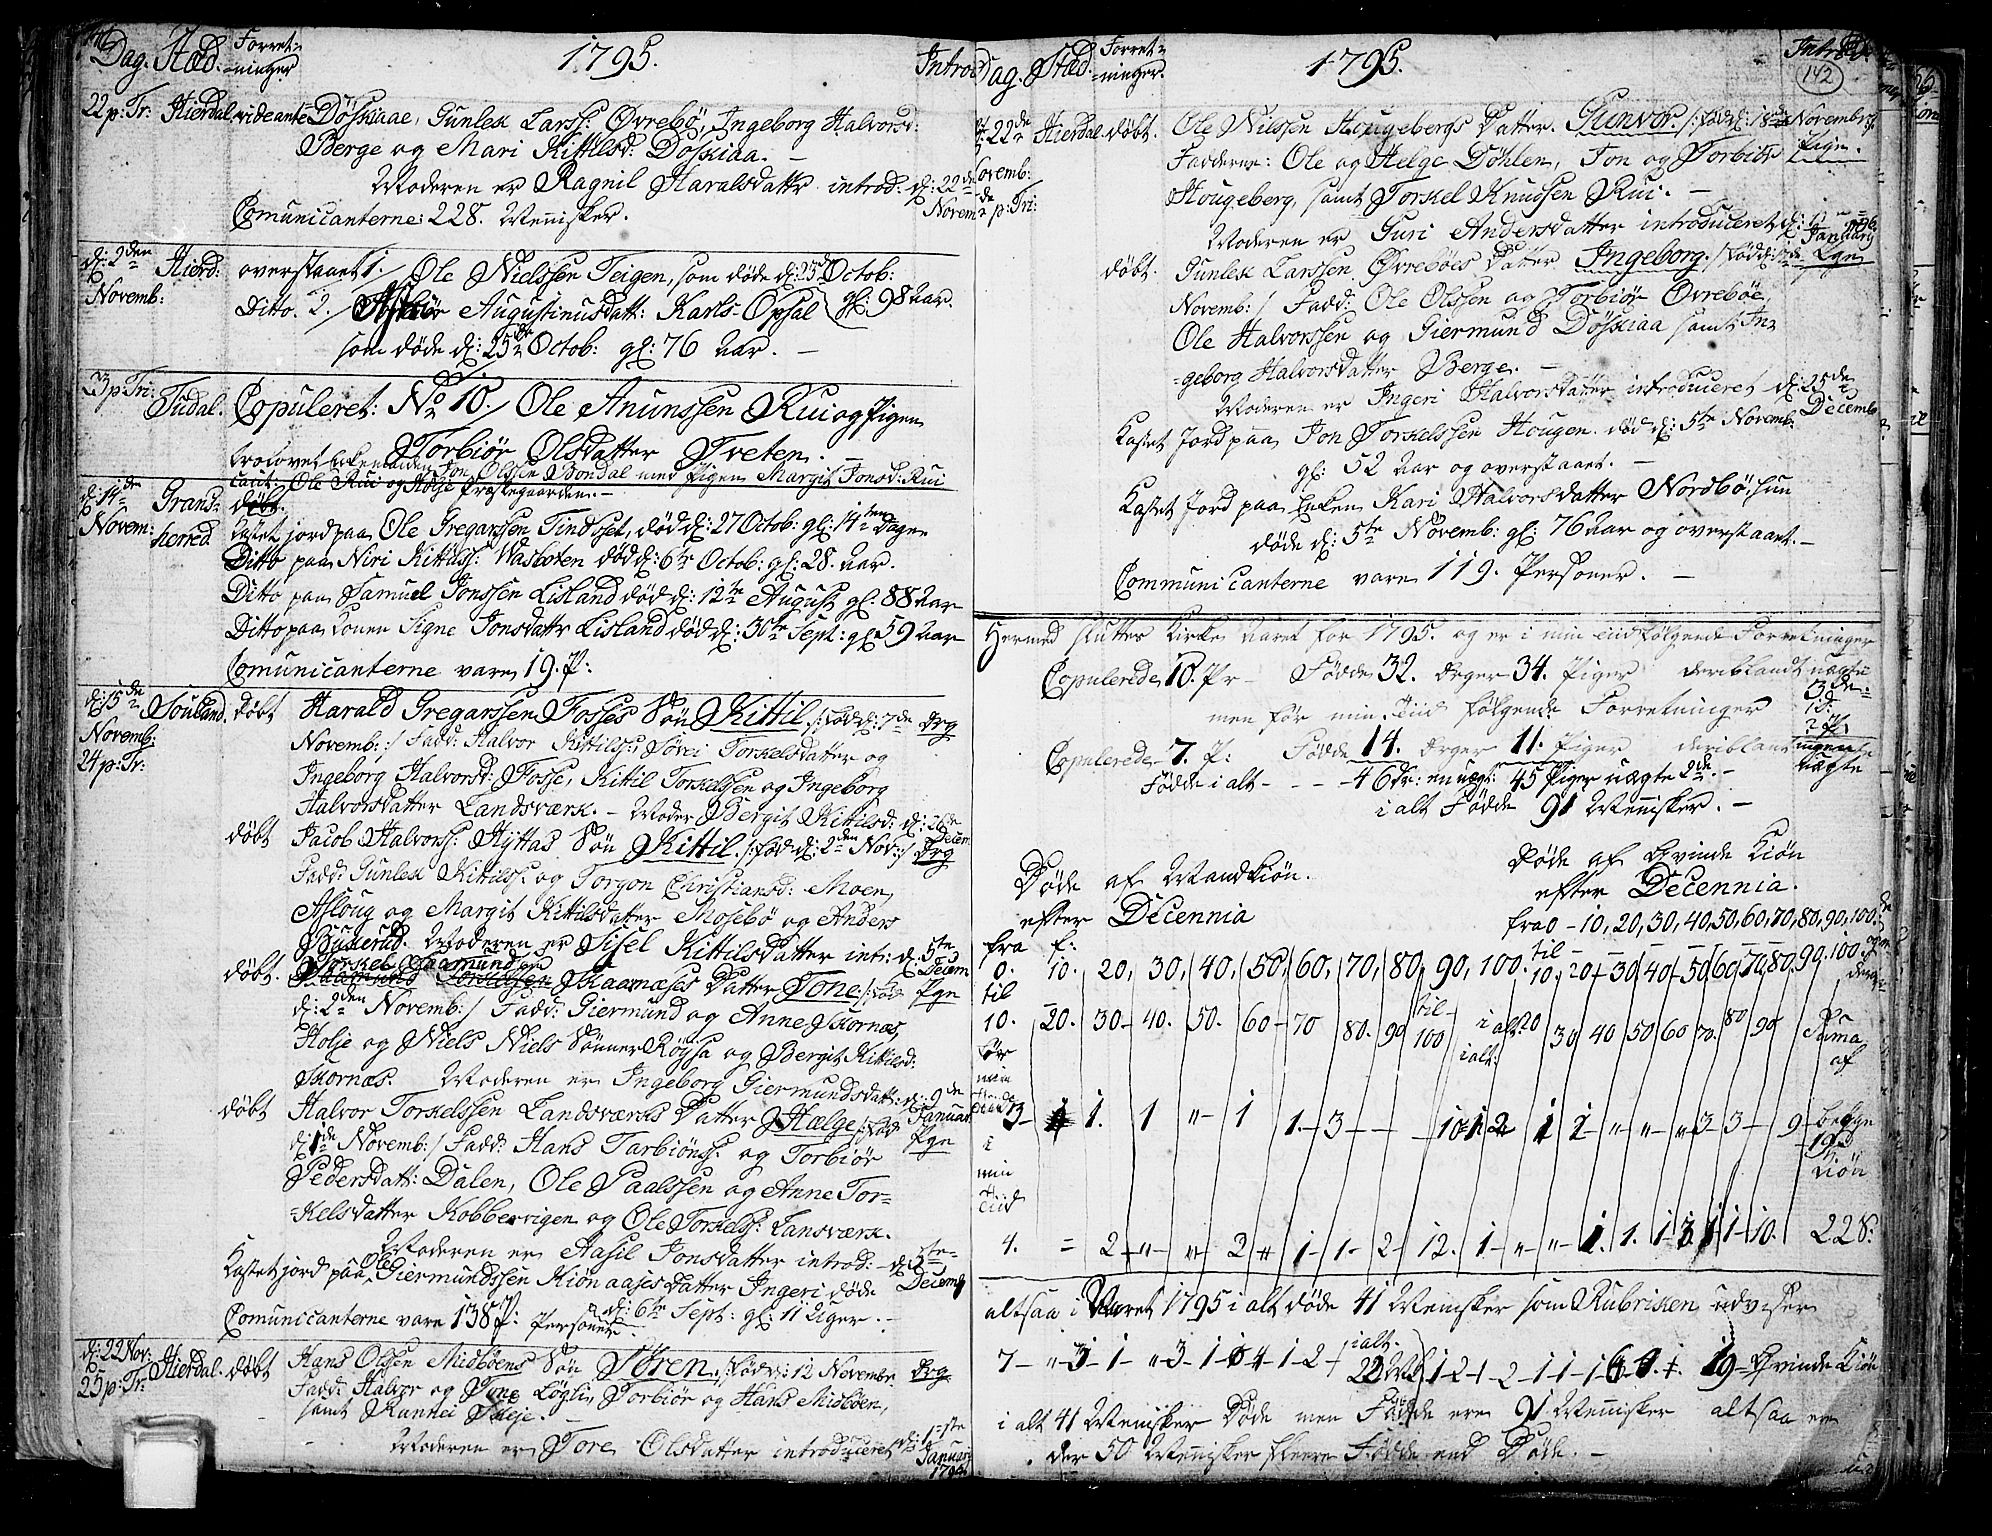 Dag. Stæd. Forret-
ninger
1795.
Introd
22 p: Tr: Hierdal vide ante Døskiaae, Gunlek Larss: Øvrebø, Ingeborg Halvorsd:
Berge og Mari Kittilsd: Døskiaa. —
Moderen er Ragnil Haralsdattr introd: d: 22de
Novem
Comunicanterne: 228. Mennisker.
d: 2den Hierd: overstaaet 1./ Ole Nielssen Teigen, som døde d: 23de Octob:
Novemb: Ditto. 2./ Augustinusdatt: Karls-Opsal gl: 98 Aar.
som døde d: 25de Octob: gl: 76 Aar. —
23 p: Tri: Tudal. Copuleret: No 10./ Ole Anunssen Rui og Pigen
Torbiør Olsdatter Tveten. —
trolovet Enkemanden Jon Olssen Bondal med Pigen Margit Jonsd: Rui
Caut: Ole Rui og Holje Præstegaarden. —
d: 14de Grans- døbt.
Novem: herred Kastet jord paa Ole Gregarssen Tindset, død d: 27 Octob: gl: 14ten Dage
Ditto paa Niri Kittilss: Wasboten død d: 6te Octob: gl: 28. Aar.
Ditto paa Samuel Jonssen Lisland død d: 12te August gl: 88 Aar
Ditto paa Konen Signe Jonsdattr Lisland død d: 30te Sept: gl: 59 Aar
Comunicanterne vare 19. P:
d: 15de Souland døbt Harald Gregarssen Fosses Søn Kittil /: fød d: 7de Drg
Novemb: Novemb: :/ Fadd: Halvor Kittilss: Søvei Torkelsdatter og
24 p: Tr: Ingeborg Halvorsd: Fosse, Kittil Torkelssen og Ingeborg
Halvorsdatter Landsværk. — Moder Bergit Kittilsd: d: 26de
Decem
døbt Jacob Halvorss: Hyttas Søn Kittil. /: fød d: 2den Nov: :/ Drg
Fadd: Gunlek Kittilss: og Torgon Christiansd: Moen,
Asloug og Margit Kittilsdatter Mosebø og Anders
Buskerud. Moderen er Sisel Kittilsdatter int: d: 5te
Decem
døbt. Torkel Saamundssen Skaarnæses Datter Tone /: fød Pge
d: 2den Novemb: :/ Fadd: Giermund og Anne Skornæs,
Holje og Niels Niels Sønner Røysa og Bergit Kittilsd:
Skornæs. Moderen er Ingeborg Giermundsdatt: d: 9de
Januar:
døbt Halvor Torkelssen Landsværks Datter Hælge /: fød Pge
d: 1de Novemb: :/ Fadd: Hans Tarbiønss: og Torbiør
Pedersdatt: Dalen, Ole Paalssen og Anne Tor-
kelsdatter Kobbervigen og Ole Torkelss: Lansværk.
Moderen er Aasil Jonsdatter introd: — d: 5te
Decemb
Kastet jord paa Ole Giermundssen Kionaases Datter Ingeri døde
d: 6te Sept: gl: 11 Uger. —
Comunicanterne vare 138 P: Personer.
d: 22 Nov: Hierdal. døbt Hans Olssen Midbøens Søn Søren. /: fød d: 12 Novembr: Drg
25 p: Tr: Fadd: Halvor og Tone Løglin, Torbiør og Hans Midbøen,
samt Rannei Skeje. —
Moderen er Tore Olsdatter introduceret d: 1ste
Januari
1796
Dag. Stæd. Forret-
ninger.
1795.
Introd:
142
22de Hierdal døbt. Ole Nilssen Hougebergs Datter. Gunvor. /: fød d: 18de Novembr:
Novemb: Fadderne: Ole og Helge Døhlen, Jon og Torbiør Pige.
p: Tri: Hougeberg, samt Torkel Knudsen Rui. —
Moderen er Guri Andersdatter introduceret d: 1
Januarj
døbt. Gunlek Larssen Øvrebøes Datter Ingeborg. /: fød d: Pge
Novemb: / Fadd: Ole Olssen og Torbiør Øvrebøe,
Ole Halvorssen og Giermund Døskiaa samt In-
geborg Halvorsdatter Berge. —
Moderen er Ingeri Halvorsdatter introduceret d: 25de
Decemb
Kastet Jord paa Jon Torkelssen Hougen død d: 5te Novemb:
gl: 52 Aar og overstaaet. —
Kastet Jord paa Enken Kari Halvorsdatter Nordbø, hun
døde d: 5te Novemb: gl: 76 Aar og overstaaet. —
Communicanterne vare 119. Personer. —
Hermed slutter Kirke Aaret for 1795. og er i min Tiid følgende Forretninger
Copulerede 10. Pr — Fødde 32. Drger 34. Piger deriblandt uægte
3de:
1 D:
2 P:
men før min Tiid følgende Forretninger
Copulerede 7. P: Fødde 14. Drger 11. Piger deriblant ingen
uægte
Fødde i alt — — — 46 Dr: en uægt: 45 Piger uægte 2de. —
i alt Fødde 91 Mennisker. —
Døde af Mandkiøn.
efter Decennia
Døde af Qvinde Kiøn
efter Decennia.
fra 0 - 10, 20, 30, 40, 50, 60, 70, 80, 90, 100.
fra f:
0. 10. 20, 30, 40, 50, 60, 70, 80, 90, 100. til 10, 20 30 40 50 60 70 80 90 100.
til
10. 20. 30 40. 50. 60 70 80. 90 til 100 i alt: 20 30 40 50 60 70. 80 90 Suma
af
før
min
Tiid 3 1. 1 „ 1 1. 3 10 2 1 1 „ „ „ 3 3 9 begge
19
Kiøn
i
min
Tiid
4. = 2 „ „ 2 „ 1 1 2 12. 1 „ „ 1. 1. 1 3 1 1 10. 228.
altsaa i Aaret 1795 i alt døde 41 Mennisker som Rubriken udviser
7 — „ 3 1 „ 3 1 4 1 2 i alt. 22 M: 1 2 2 1 1 1 6 19 Qvinde Kiøn
i alt 41 Mennisker Døde men Fødde ere 91 Mennisker altsaa er
der 50 Mennisker fleere Fødde end Døde. —